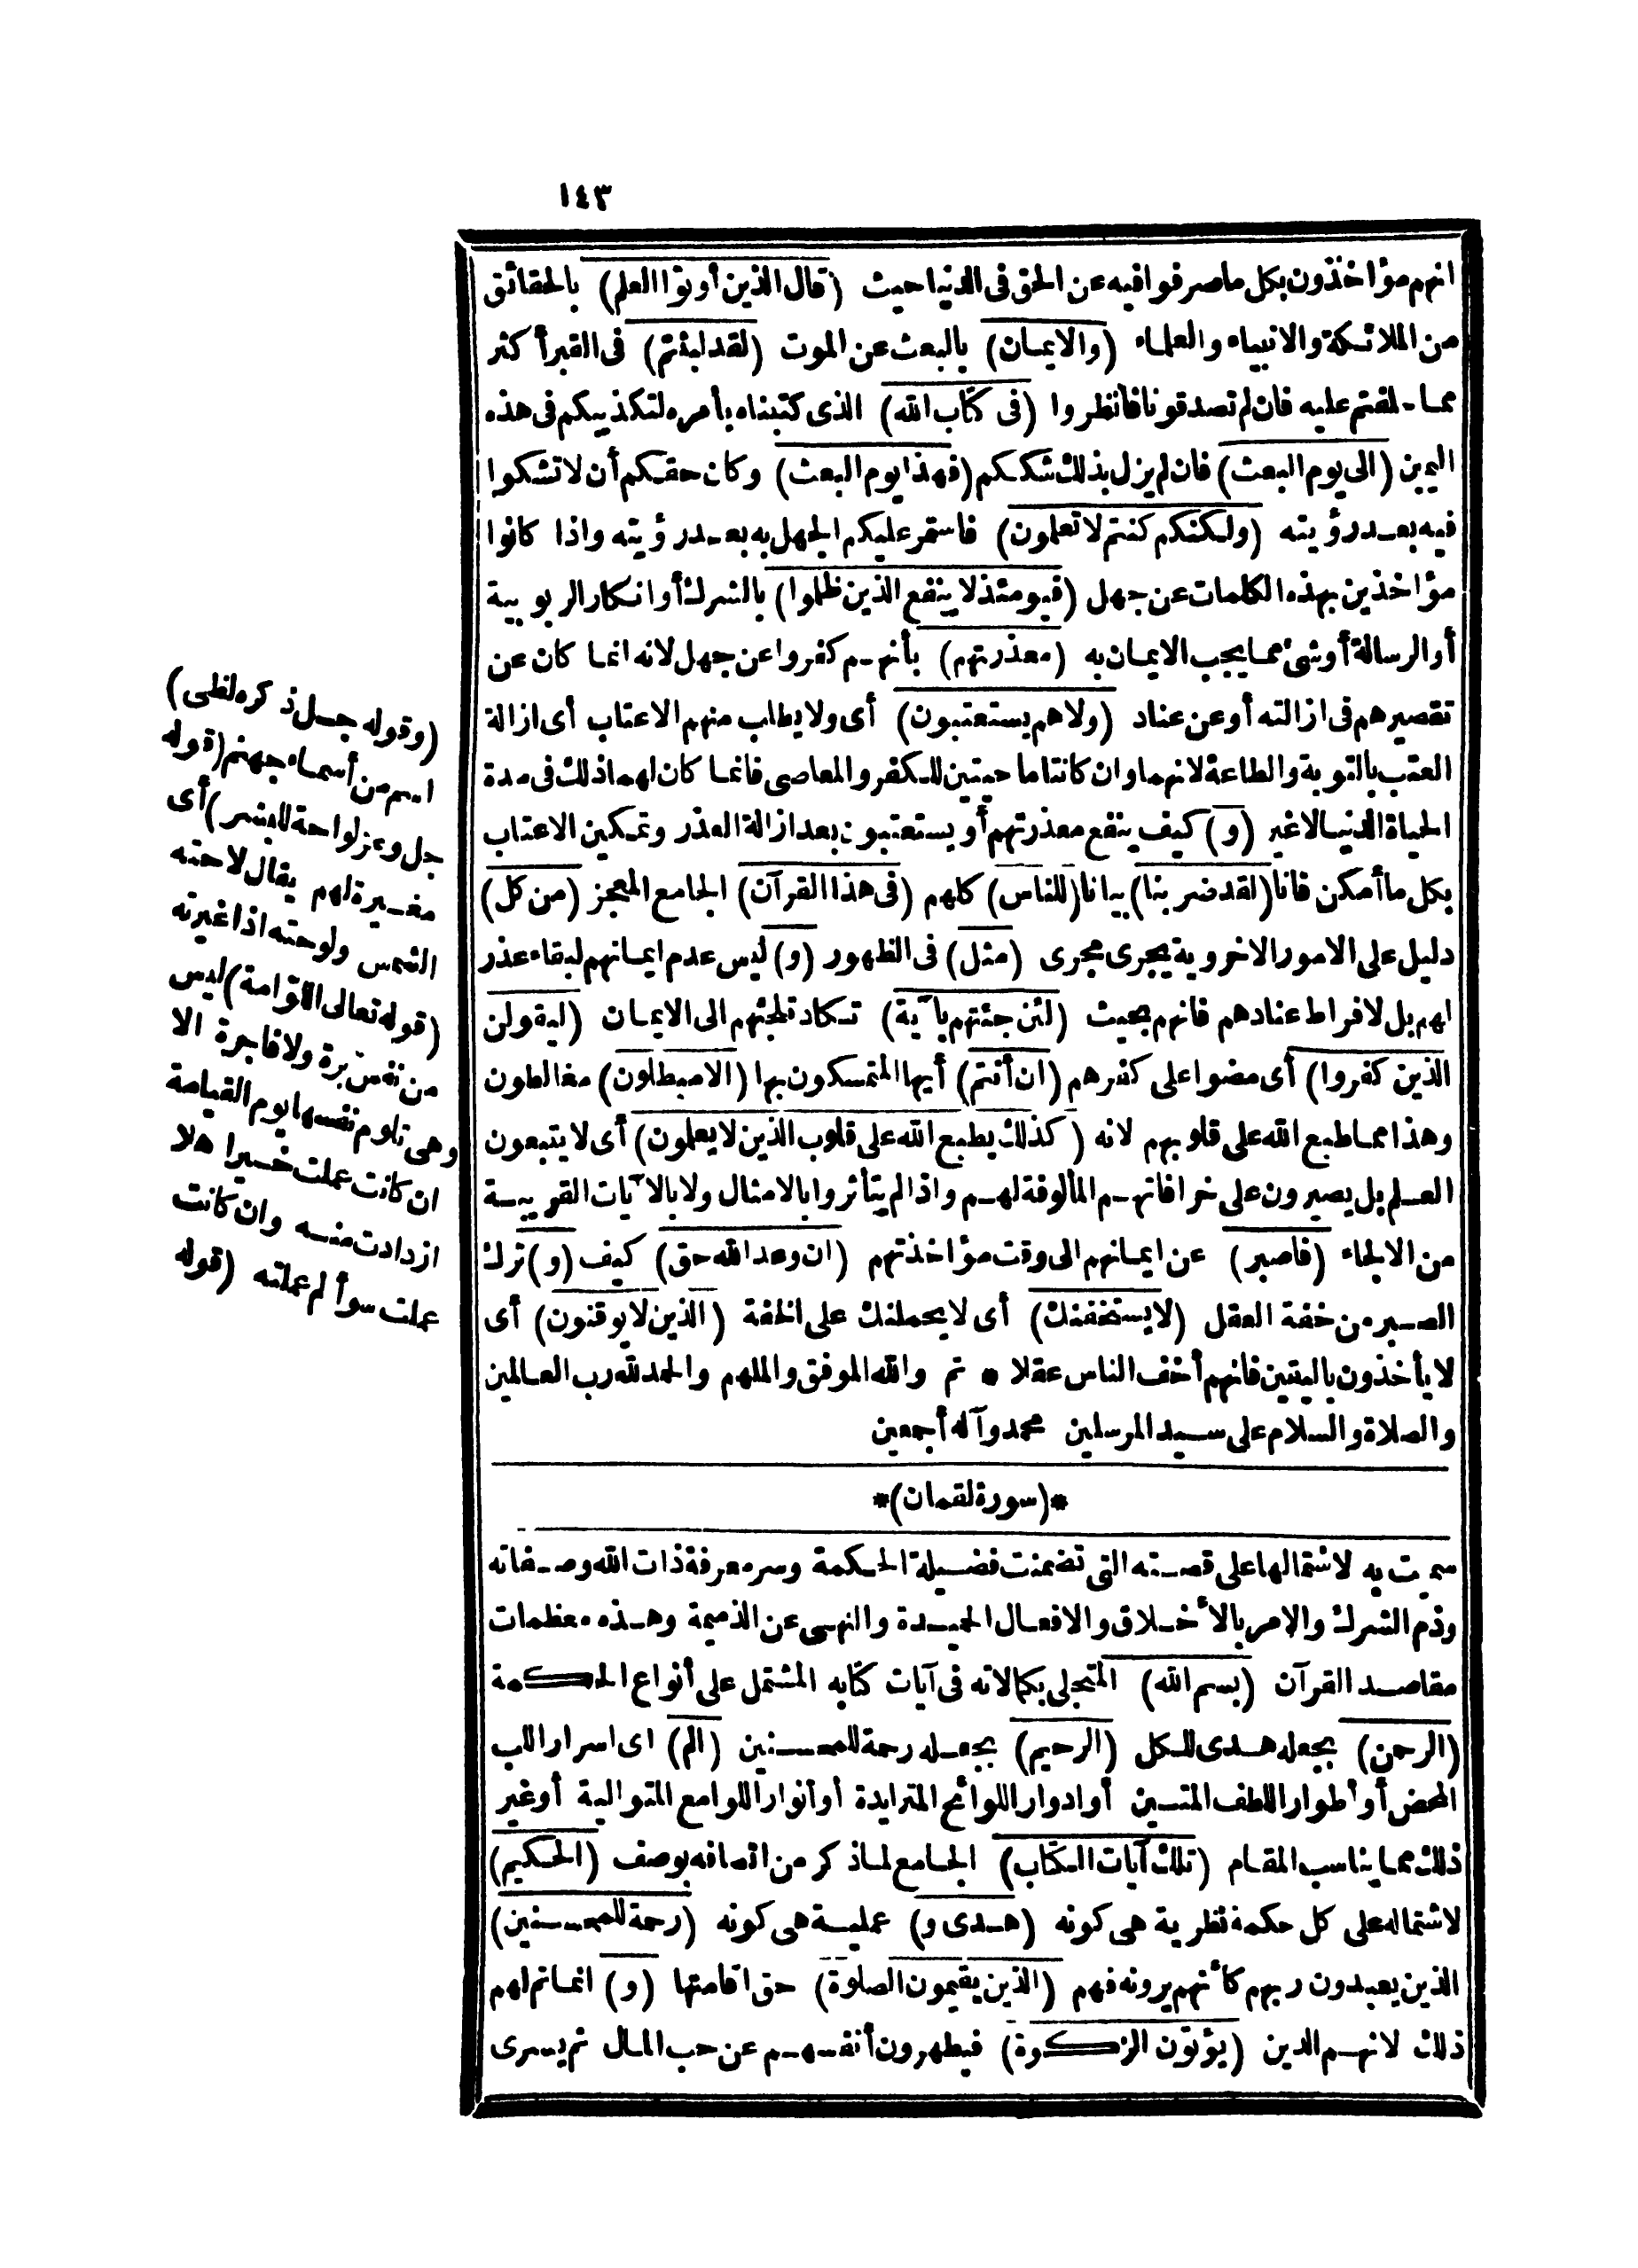 ١٤٣
انهم مؤاخذون بكل ما صرفوا فيه عن الحق فى الدنيا حيث (قال الذين أوتوا العلم) بالحقائق
من الملائكة والانبياء والعلماء (والايمان) بالبعث عن الموت (لقد لبثتم) فى القبر أكثر
مما حلفتم عليه فان لم تصدقونا فانظروا (فى كتاب الله) الذى كتبناه بأمره لتكذيبكم فى هذه
اليمين (الى يوم البعث) فان لم يزل بذلك شككم (فهذا يوم البعث) وكان حقكم أن لا تشكوا
فيه بعد رؤيته (ولكنكم كنتم لا تعلمون) فاستمر عليكم الجهل به بعد رؤيته واذا كانوا
مؤاخذين بهذه الكلمات عن جهل (فيومئذ لا ينفع الذين ظلموا) بالشرك أو انكار الربوبية
أو الرسالة أو شئ مما يجب الايمان به (معذرتهم) بأنهم كفروا عن جهل لانه انما كان عن
تقصيرهم فى ازالته أو عن عناد (ولا هم يستعتبون) أى ولا يطلب منهم الاعتاب أى ازالة
العتب بالتوبة والطاعة لانهما وان كانتا ماحيتين للكفر والمعاصى فانما كان لهما ذلك فى مدة
الحياة الدنيا لا غير (و) كيف ينفع معذرتهم أو يستعتبون بعد ازالة العذر وتمكين الاعتاب
بكل ما أمكن فانا (لقد ضربنا) بيانا (للناس) كلهم (فى هذا القرآن) الجامع المعجز (من كل)
دليل على الامور الاخروية يجرى مجرى (مثل) فى الظهور (و) ليس عدم ايمانهم لبقاء عذر
لهم بل لافراط عنادهم فانهم بحيث (لئن جئتهم بآية) تكاد تلجئهم الى الايمان (ليقولن
الذين كفروا) أى مضوا على كفرهم (ان أنتم) أيها المتمسكون بها (الا مبطلون) مغالطون
وهذا مما طبع الله على قلوبهم لانه (كذلك يطبع الله على قلوب الذين لا يعلمون) أى لا يتبعون
العلم بل يصيرون على خرافاتهم المألوفة لهم واذا لم يتأثروا بالامثال ولا بالآيات القريبة
من الالجاء (فاصبر) عن ايمانهم الى وقت مؤاخذتهم (ان وعد الله حق) كيف (و) ترك
الصبر من خفة العقل (لا يستخفنك) أى لا يحملنك على الخفة (الذين لا يوقنون) أى
لا يأخذون باليقين فانهم أخف الناس عقلا * تم والله الموفق والملهم والحمد لله رب العالمين
والصلاة والسلام على سيد المرسلين محمد وآله أجمعين
*(سورة لقمان)*
سميت به لاشتمالها على قصته التى تضمنت فضيلة الحكمة وسر معرفة ذات الله وصفاته
وذم الشرك والامر بالأخلاق والافعال الحميدة والنهى عن الذميمة وهذه معظمات
مقاصد القرآن (بسم الله) المتجلى بكمالاته فى آيات كتابه المشتمل على أنواع الحكمة
(الرحمن) بجعله هدى للكل (الرحيم) بجعله رحمة للمحسنين (الم) اى اسرار اللب
المحض أو أطوار اللطف المتسين أو ادوار اللوائح المتزايدة أو أنوار اللوامع المتوالية أو غير
ذلك مما يناسب المقام (تلك آيات الكتاب) الجامع لما ذكر من اتصافه بوصف (الحكيم)
لاشتماله على كل حكمة نظرية هى كونه (هدى و) عملية هى كونه (رحمة للمحسنين)
الذين يعبدون ربهم كأنهم يرونه فهم (الذين يقيمون الصلوة) حق اقامتها (و) انما تم لهم
ذلك لانهم الذين (يؤتون الزكوة) فيطهرون أنفسهم عن حب المال ثم يسرى
(وقوله جل ذكره لظى)
اسم من أسماء جهنم (قوله
جل وعز لواحة للبشر) أى
مغيرة لهم يقال لاحته
الشمس ولوحته اذا غيرته
(قوله تعالى اللوامة) ليس
من نفس برة ولا فاجرة الا
وهى تلوم نفسها يوم القيامة
ان كانت عملت خيرا هلا
ازدادت منه وان كانت
عملت سوأ لم عملته (قوله